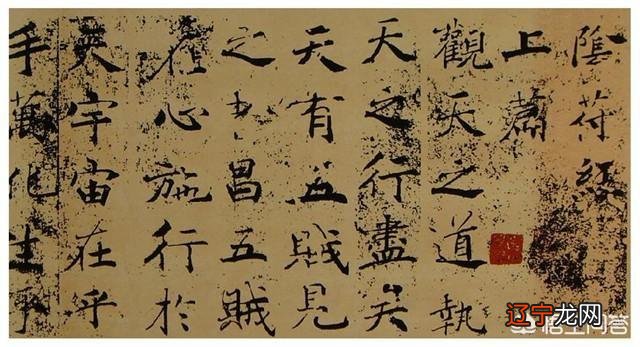 陰符經
上篇
觀天之道執
天之行盡矣
天有五賊見
之者昌五賊
在心施行於
天宇宙在乎
手萬化生乎
辽宁龙网
悟空问答